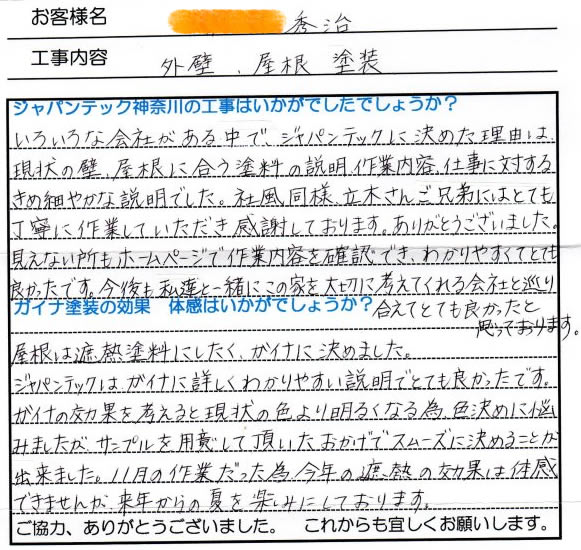 お客様名 秀治
工事内容 外壁、屋根 塗装
ジャパンテック神奈川の工事はいかがでしたでしょうか？
いろいろな会社がある中で、ジャパンテックに決めた理由は、
現状の壁、屋根に合う塗料の説明、作業内容、仕事に対する
きめ細やかな説明でした。社風同様、立木さんご兄弟にはとても
丁寧に作業していただき感謝しております。ありがとうございました。
見えない所もホームページで作業内容を確認でき、わかりやすくてとても
良かったです。今後も私達と一緒にこの家を大切に考えてくれる会社と巡り
合えてとても良かったと
思っております。
ガイナ塗装の効果 体感はいかがでしょうか？
屋根は遮熱塗料にしたく、ガイナに決めました。
ジャパンテックはガイナに詳しくわかりやすい説明でとても良かったです。
ガイナの効果を考えると現状の色より明るくなる為、色決めに悩
みましたが、サンプルを用意して頂いたおかげでスムーズに決めることが
出来ました。11月の作業だった為今年の遮熱の効果は体感
できませんが、来年からの夏を楽しみにしております。
ご協力、ありがとうございました。 これからも宜しくお願いします。